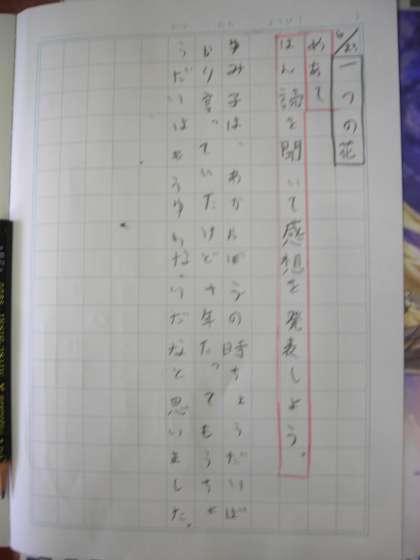 6/23
一つの花
めあて
はん読を聞いて感想を発表しよう。
ゆみ子は、あかんぼうの時ちょうだいば
かり言っていたけど十年たってもうちょ
うだいはもうゆわないんだなと思いました。